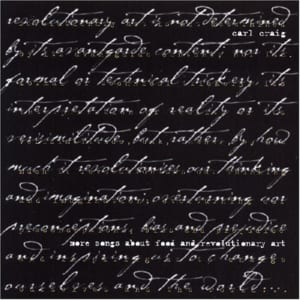 revolutionary art is not determined
carl craig
by its avantgarde content, nor its
formal or technical trickery, its
interpretation of reality or its
verisimilitude, but, rather, by how
much it revolutionises our thinking
and imagination; overturning our
preconceptions, bias and prejudice
more songs about food and revolutionary art
and inspiring us to change
ourselves and the world....